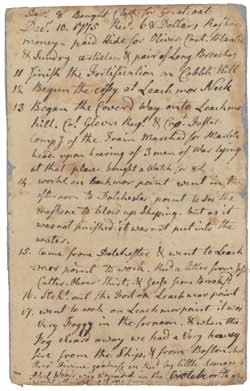 9 & Bought Cloth for Great coat.
Decr. 10. 1775 Recd. 6 Dollars
money - paid Hide for Olivers Coat,
& Sundry articles, & pair of Long Breeches
11 Finish the Fortification on Cobble Hill
12 Begun the at Leachmor Neck
13 Began the Covered Way onto Leachmor
hill. Col. Glover Regt. & Capt. Foster
Comp of the Train Marched for Marble
head upon hearing of 3 men of War lying
at that place. bought a Watch for 8d
14. workd on Leachmor point in the
afternoon to Dotchester point to See the
to blow up Shiping. but as it
was not finished it was not put into the
water.
15. Came from Dotchester & went to Leach
-mor point to work. Recd a letter from
Shirt, & from
16. the Fort on Leachmor point
17. went to work on Leachmor point it was
Very Foggy in the fornoon. & when the
Fog Cleard away we had a Very heavey
fire from the Ships, & from Boston.